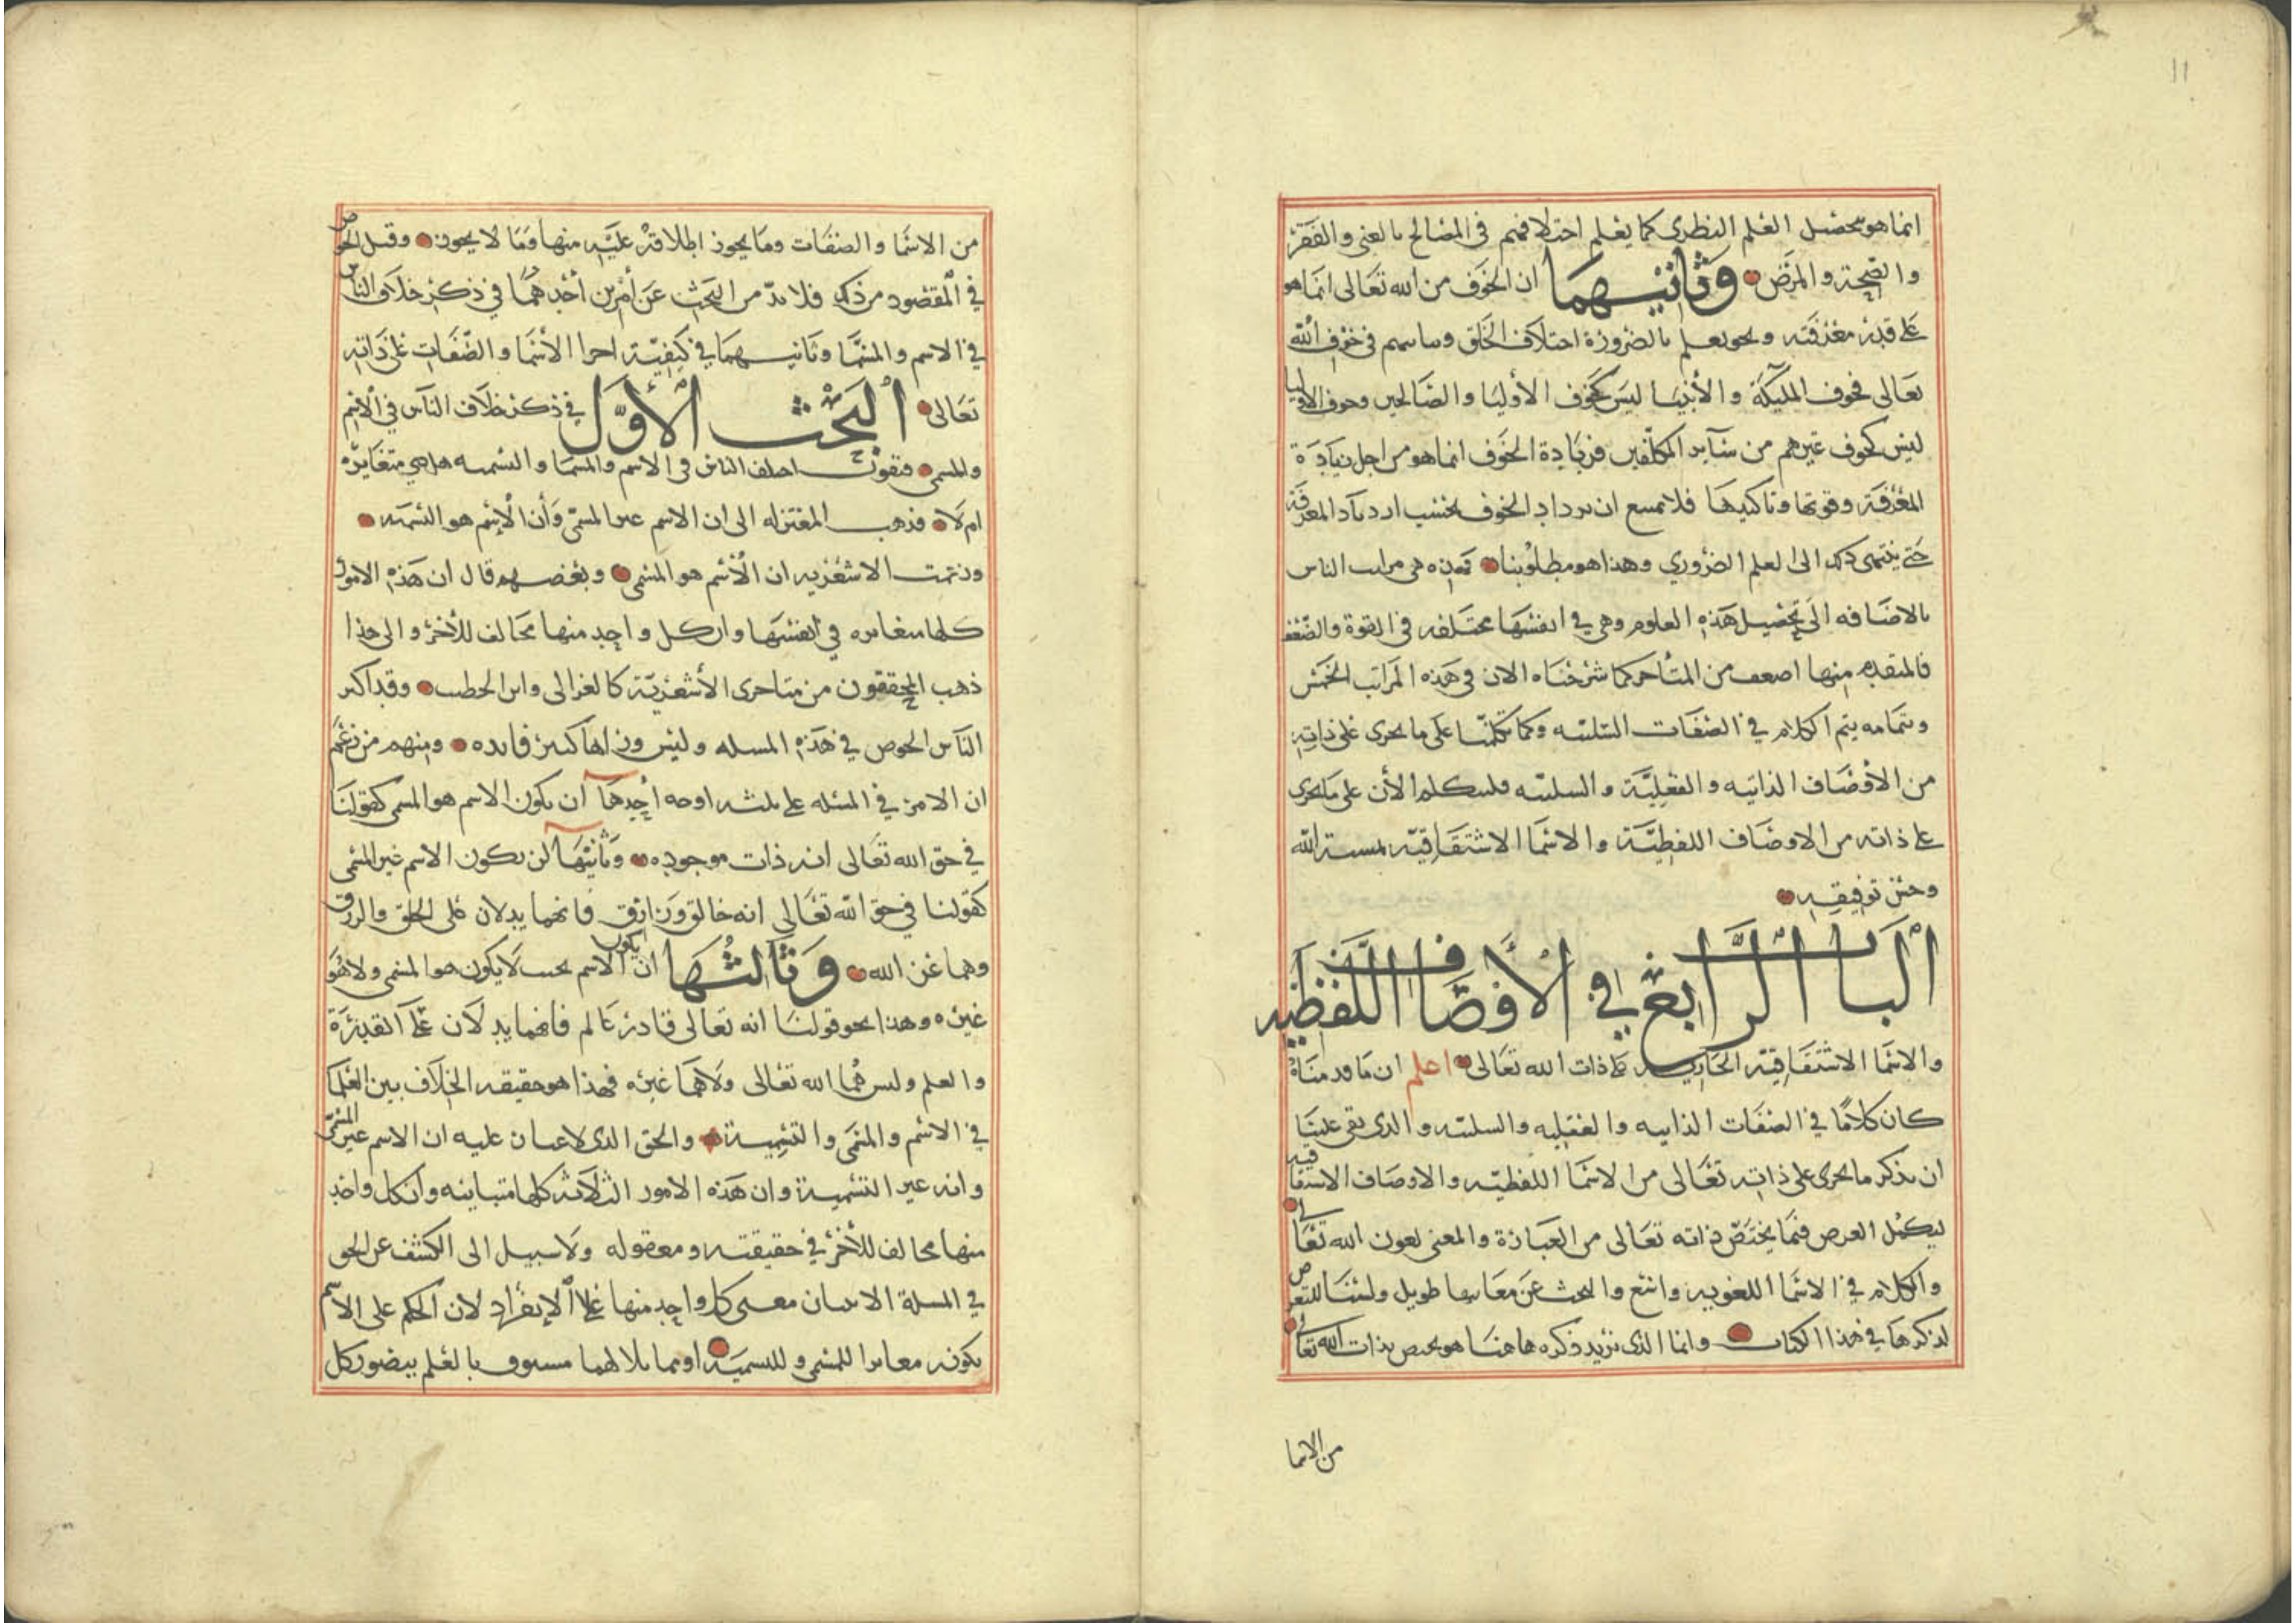 11
انما هو تحصل العلم النظرى كما يعلم اختلافهم فى المصالح بالغنى والفقر
والصحة والمرض وثانيهما ان الخوف من الله تعالى انما هو
على قدر معرفته ونحن نعلم بالضرورة اختلاف الخلق وتباينهم فى خوف الله
تعالى فخوف المليكة والأنبيا ليس كخوف الأوليا والصالحين وخوف الاوليا
ليس كخوف غيرهم من سآير المكلفين فزيادة الخوف انما هو من اجل زيادة
المعرفة وقوتها وتاكيدها فلا يمتنع ان يزداد الخوف بحسب ازدياد المعرفة
حتى ينتهى ذلك الى العلم الضروري وهذا هو مطلوبنا فهذه هى مراتب الناس
بالاضافه الى تحصيل هذه العلوم وهى فى انفسها مختلفه فى القوة والضعف
فالمتقدم منها اضعف من المتأخر كما شرحناه الان فى هذه المراتب الخمس
وبتمامه يتم الكلام في الصفات السلبيه وكما تكلمنا على ما يجرى على ذاته
من الأوصاف الذاتيه والفعلية والسلبيه فلنتكلم الأن على ما يجرى
على ذاته من الاوصاف اللفظية والاسما الاشتقاقية بمشية الله
وحسن توفيقه
الباب الرابع في الأوصاف اللفظيه
والاسما الاشتقاقية الجارية على ذات الله تعالى اعلم ان ما قدمناه
كان كلامًا في الصفات الذاتيه والفعليه والسلبيه والذى بقى علينا
ان نذكر ما يجرى على ذاته تعالى من الاسما اللفظيه والاوصاف الاشتقاقيه
ليكمل الغرض فيما يختص ذاته تعالى من العبارة والمعنى بعون الله تعالى
والكلام في الاسما اللغويه واسع والبحث عن معانيها طويل ولسنا للتعرض
لذكرها في هذا الكتاب وانما الذى نريد ذكره هاهنا هو يختص بذات الله تعالى
من الاسما
من الاسما والصفات وما يجوز اطلاقه عليه منها وما لا يجوز وقبل الخوض
في المقصود من ذلك فلا بد من البحث عن أمرين أحدهما في ذكر خلاف الناس
في الاسم والمسما وثانيهما في كيفية اجرا الأسما والصفات على ذاته
تعالى البحث الأول في ذكر خلاف الناس في الاسم
والمسمى فنقول اختلف الناس فى الاسم والمسما والتسميه هل هي متغايره
ام لا فذهب المعتزله الى ان الاسم غير المسمى وأن الإسم هو التسميه
وزعمت الاشعريه ان الأسم هو المسمى وبعضهم قال ان هذه الامور
كلها متغايره في أنفسها وان كل واحد منها مخالف للأخر والى هذا
ذهب المحققون من متاخرى الأشعرية كالغزالى وابن الخطيب وقد اكثر
الناس الخوض في هذه المسله وليس وراها كثير فايده ومنهم من زعم
ان الامر في المسئله على ثلثه اوجه أحدها آن يكون الاسم هو المسمى كقولنا
في حق الله تعالى انه ذات موجوده وثانيها أن يكون الاسم غير المسمى
كقولنا في حق الله تعالى انه خالق ورازق فانهما يدلان على الخلق والرزق
وهما غير الله وثالثها ان يكون الاسم بحيث لا يكون هو المسمى ولا هو
غيره وهذا نحو قولنا انه تعالى قادر عالم فانهما يدلان على القدرة
والعلم وليس هما الله تعالى ولا هما غيره فهذا هو حقيقه الخلاف بين العلما
في الاسم والمسمى والتسمية والحق الذى لا غبار عليه ان الاسم غير المسمى
وانه غير التسمية وان هذه الامور الثلاثه كلها متباينه وان كل واحد
منها مخالف للأخر في حقيقته ومعقوله ولا سبيل الى الكشف عن الحق
في المسلة الا ببيان معنى كل واحد منها على الإنفراد لان الحكم على الاسم
بكونه مغايرا للمسمى وللتسمية او مماثلا لهما مسبوق بالعلم بتصور كل